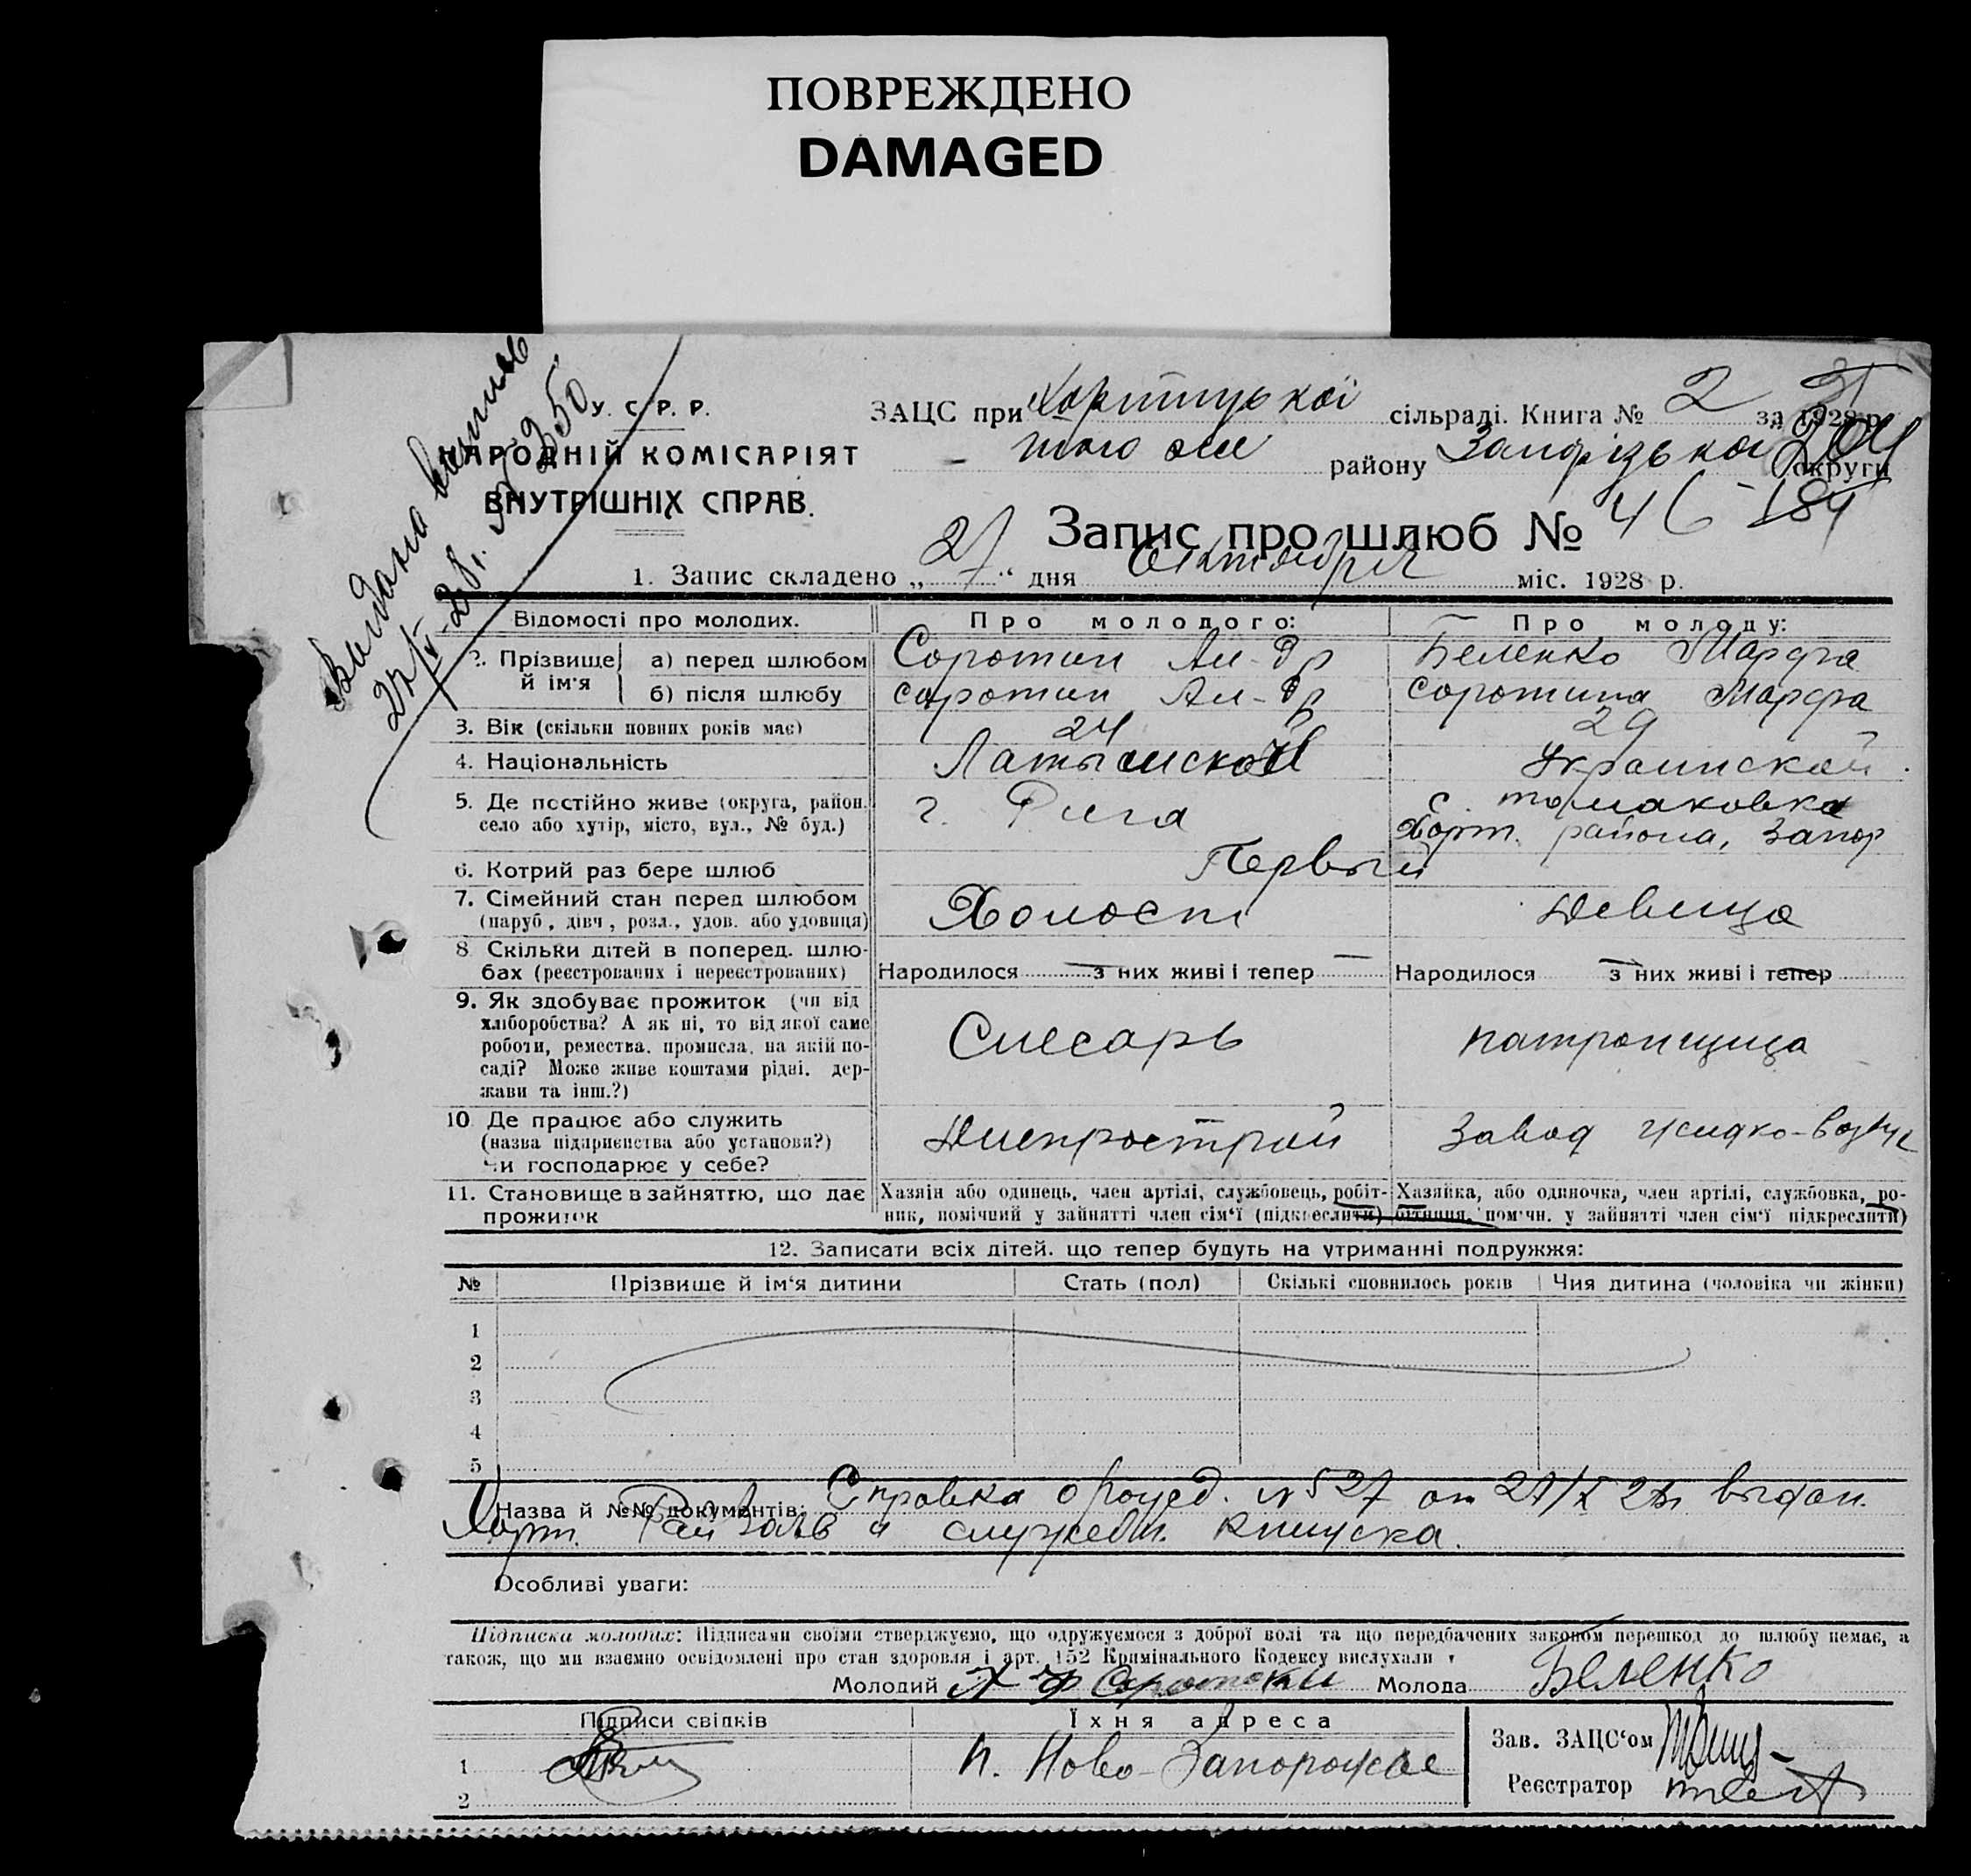 ПОВРЕЖДЕНО
DAMAGED
Видано витяг
27/X-28 г. № 350
У. С. Р. Р.
НАРОДНІЙ КОМІСАРІЯТ
ВНУТРІШНІХ СПРАВ.
ЗАЦС при Хортицької сільраді. Книга № 2 за 1928 р.
того же району Запорізької округи
204
Запис про шлюб № 46 184
1. Запис складено „27“ дня Октября міс. 1928 р.
Відомості про молодих. Про молодого: Про молоду:
2. Прізвище й ім'я а) перед шлюбом Соротин Ал-др Беленко Марфа
б) після шлюбу Соротин Ал-др Соротина Марфа
3. Вік (скільки повних років має) 24 29
4. Національність Латышской Украинской
5. Де постійно живе (округа, район, г. Рига с. Томаковка
село або хутір, місто, вул., № буд.) Хорт. района, Запор
6. Котрий раз бере шлюб Первый
7. Сімейний стан перед шлюбом Холост Девица
(паруб, дівч, розл., удов. або удовиця)
8. Скільки дітей в поперед. шлю-
бах (реєстрованих і нереєстрованих) Народилося — з них живі і тепер — Народилося — з них живі і тепер —
9. Як здобуває прожиток (чи від
хліборобства? А як ні, то від якої саме
роботи, ремества, промисла, на якій по- Слесарь патронщица
саді? Може живе коштами рідні, дер-
жави та інш.?)
10. Де працює або служить
(назва підприємства або установи?) Днепрострой Завод жидко-возд
Чи господарює у себе?
11. Становище в зайняттю, що дає Хазяїн або одинець, член артілі, службовець, робіт- Хазяйка, або одиночка, член артілі, службовка, ро-
прожиток ник, помічний у зайнятті член сім'ї (підкреслити) бітниця, помічн. у зайнятті член сім'ї підкреслити)
12. Записати всіх дітей, що тепер будуть на утриманні подружжя:
№ Прізвище й ім'я дитини Стать (пол) Скількі сповнилось років Чия дитина (чоловіка чи жінки)
1
2
3
4
5
Назва й №№ документів: Справка о рожд. № 527 от 27/X 28 выдан.
Хорт. Рай и служебн. книжка.
Особливі уваги:
Підписка молодих: Підписами своїми стверджуємо, що одружуємося з доброї волі та що передбачених законом перешкод до шлюбу немає, а
також, що ми взаємно освідомлені про стан здоровля і арт. 152 Кримінального Кодексу вислухали
Молодий Молода Беленко
Підписи свідків Їхня адреса
Зав. ЗАЦС'ом
1 п. Ново-Запорожье
Реєстратор
2